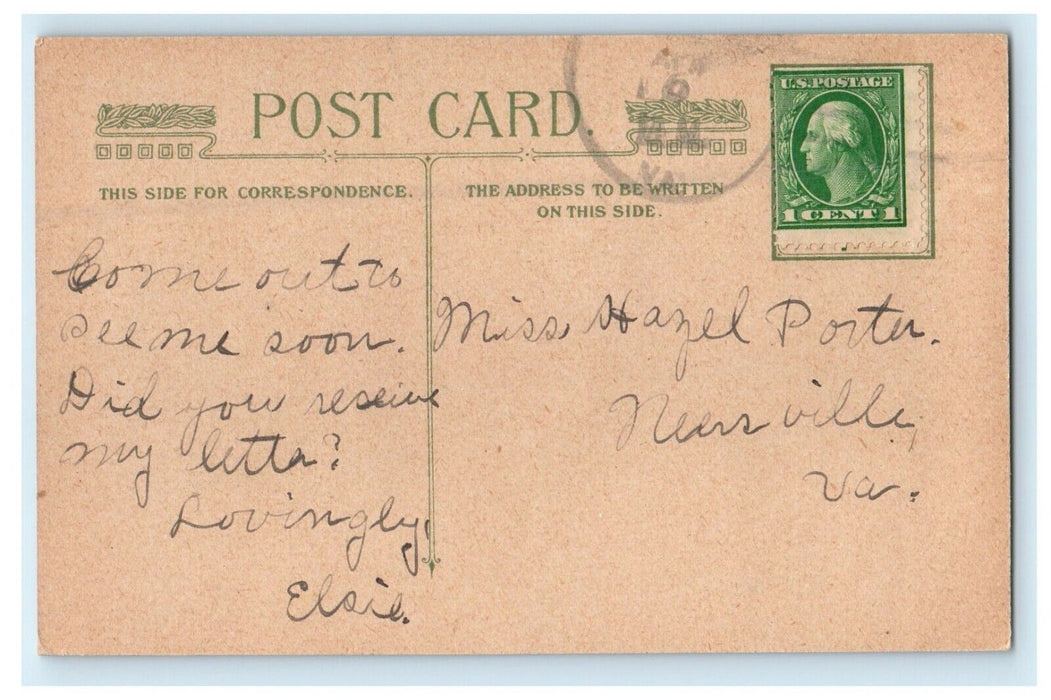 POST CARD.
THIS SIDE FOR CORRESPONDENCE.
THE ADDRESS TO BE WRITTEN
ON THIS SIDE.
U.S. POSTAGE
1 CENT 1
Come out to
see me soon.
Did you reseive
my letter?
Lovingly,
Elsie.
Miss Hazel Porter.
Neersville,
Va.
VA.